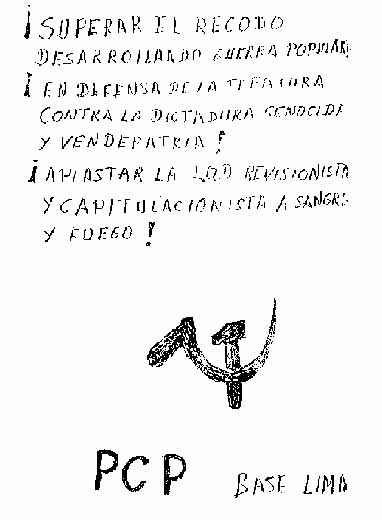 ¡SUPERAR EL RECODO
DESARROLLANDO GUERRA POPULAR
¡EN DEFENSA DE LA JEFATURA
CONTRA LA DICTADURA GENOCIDA
Y VENDEPATRIA!
¡APLASTAR LA LOD REVISIONISTA
Y CAPITULACIONISTA A SANGRE
Y FUEGO!
PCP BASE LIMA